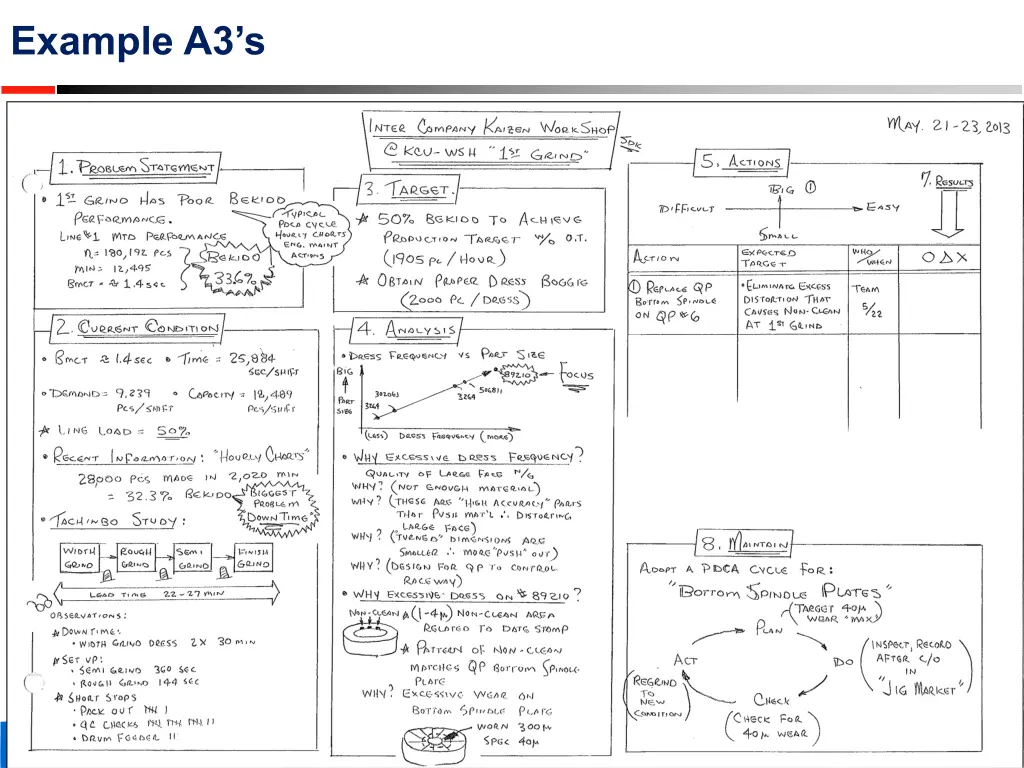 Example A3's
INTER COMPANY KAIZEN WORKSHOP
@ KCU-WSH "1ST GRIND"
SDK
MAY. 21-23, 2013
1. PROBLEM STATEMENT
• 1ST GRIND HAS POOR BEKIDO
PERFORMANCE.
LINE #1 MTD PERFORMANCE
n = 180,192 PCS
MIN = 12,495
BMCT = ≈ 1.4 SEC
BEKIDO
33.6%
TYPICAL
PDCA CYCLE
HOURLY CHARTS
ENG. MAINT
ACTIONS
2. CURRENT CONDITION
• BMCT ≈ 1.4 SEC • TIME = 25,884
SEC/SHIFT
• DEMAND = 9,239 • CAPACITY = 18,489
PCS/SHIFT PCS/SHIFT
☆ LINE LOAD = 50%
• RECENT INFORMATION: "HOURLY CHARTS"
28,000 PCS MADE IN 2,020 MIN
= 32.3% BEKIDO
BIGGEST
PROBLEM
"DOWN TIME"
• TACHINBO STUDY:
WIDTH GRIND
ROUGH GRIND
SEMI GRIND
FINISH GRIND
LEAD TIME 22-27 MIN
OBSERVATIONS:
☆ DOWNTIME:
• WIDTH GRIND DRESS 2X 30 MIN
☆ SET UP:
• SEMI GRIND 360 SEC
• ROUGH GRIND 144 SEC
☆ SHORT STOPS
• PACK OUT
• QC CHECKS
• DRUM FEEDER II
3. TARGET.
☆ 50% BEKIDO TO ACHIEVE
PRODUCTION TARGET W/O O.T.
(1905 PC/HOUR)
☆ OBTAIN PROPER DRESS BOGGIE
(2000 PC/DRESS)
4. ANALYSIS
• DRESS FREQUENCY VS PART SIZE
BIG
PART
SIZE
3264
302063
3264
506811
89210
FOCUS
(LESS) DRESS FREQUENCY (MORE)
• WHY EXCESSIVE DRESS FREQUENCY?
QUALITY OF LARGE FACE N/G
WHY? (NOT ENOUGH MATERIAL)
WHY? (THESE ARE "HIGH ACCURACY" PARTS
THAT PUSH MAT'L ∴ DISTORTING
LARGE FACE)
WHY? ("TURNED" DIMENSIONS ARE
SMALLER ∴ MORE "PUSH" OUT)
WHY? (DESIGN FOR QP TO CONTROL
RACEWAY)
• WHY EXCESSIVE DRESS ON # 89210?
NON-CLEAN
☆ (1-4μ) NON-CLEAN AREA
RELATED TO DATE STAMP
☆ PATTERN OF NON-CLEAN
MATCHES QP BOTTOM SPINDLE
PLATE
WHY? EXCESSIVE WEAR ON
BOTTOM SPINDLE PLATE
WORN 300μ
SPEC 40μ
5. ACTIONS
BIG ①
DIFFICULT
EASY
SMALL
7. RESULTS
ACTION
EXPECTED
TARGET
WHO/
WHEN
O Δ X
① REPLACE QP
BOTTOM SPINDLE
ON QP #6
• ELIMINATE EXCESS
DISTORTION THAT
CAUSES NON-CLEAN
AT 1ST GRIND
TEAM
5/22
8. MAINTAIN
ADOPT A PDCA CYCLE FOR:
"BOTTOM SPINDLE PLATES"
(TARGET 40μ
WEAR "MAX")
PLAN
DO
(INSPECT, RECORD
AFTER C/O
IN
"JIG MARKET")
CHECK
(CHECK FOR
40μ WEAR)
ACT
(REGRIND
TO
NEW
CONDITION)